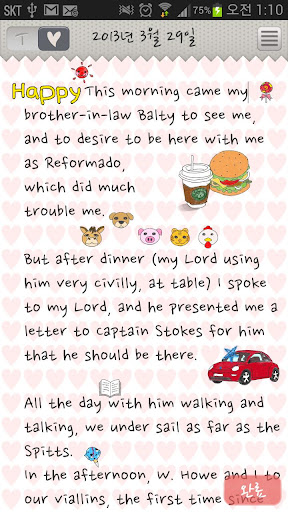 SKT 75% 오전 1:10
T 2013년 3월 29일
Happy This morning came my
brother-in-law Balty to see me,
and to desire to be here with me
as Reformado,
which did much
trouble me.
But after dinner (my Lord using
him very civilly, at table) I spoke
to my Lord, and he presented me a
letter to captain Stokes for him
that he should be there.
All the day with him walking and
talking, we under sail as far as the
Spitts.
In the afternoon, W. Howe and I to
our viallins, the first time since
완료